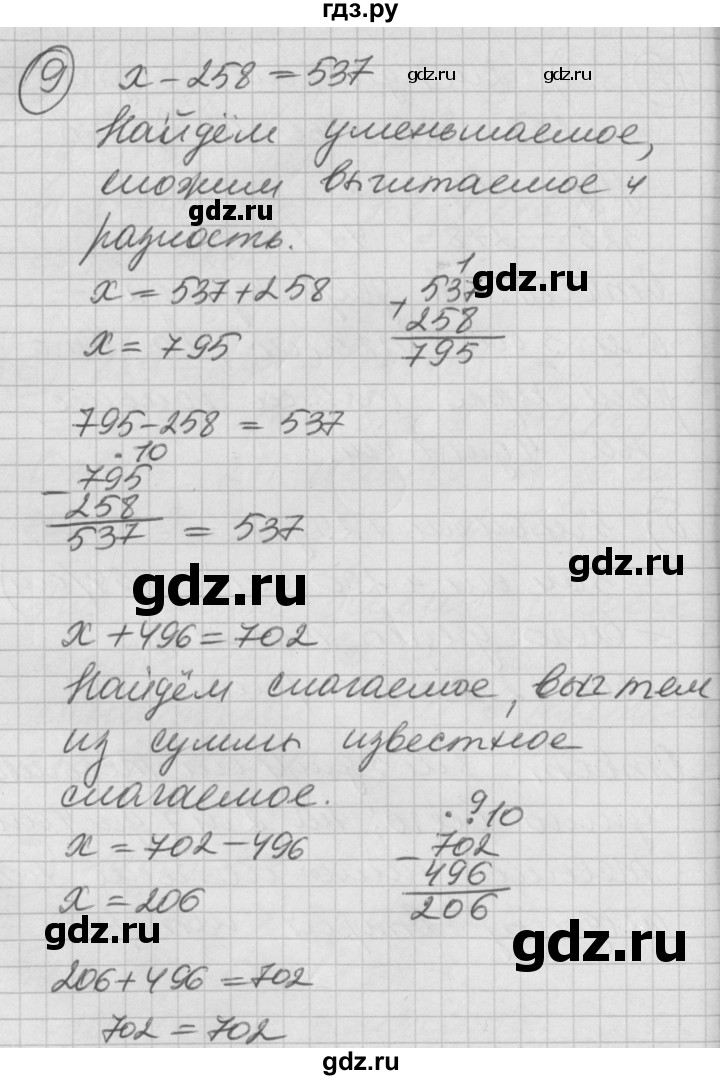 гдз.ру
9 x - 258 = 537 gdz.ru gdz.ru
Найдём уменьшаемое,
сложим вычитаемое и
gdz.ru
разность.
x = 537 + 258
x = 795
1
+ 537 gdz.ru
258
795
795 - 258 = 537
. 10
- 795
258
537 = 537
gdz.ru
gdz.ru
x + 496 = 702
Найдём слагаемое, вычтем
из суммы известное
слагаемое.
x = 702 - 496
x = 206
. 9
. 10
- 702
496
206
gdz.ru
gdz.ru
206 + 496 = 702
702 = 702
gdz.ru